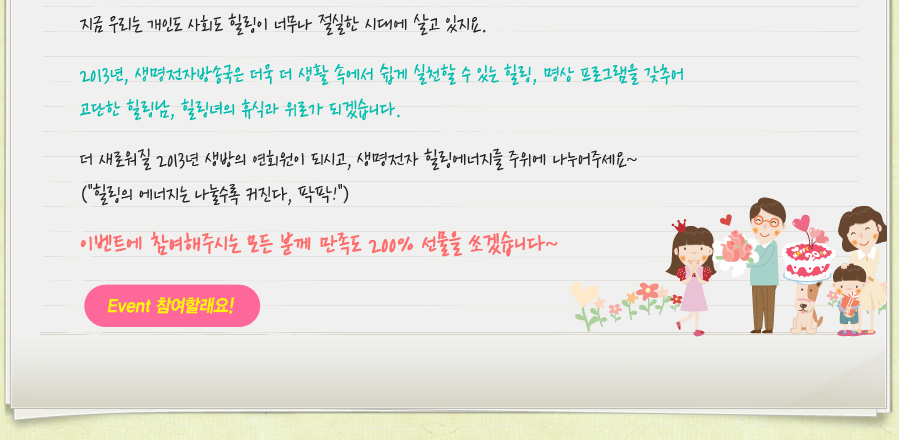 지금 우리는 개인도 사회도 힐링이 너무나 절실한 시대에 살고 있지요.
2013년, 생명전자방송국은 더욱 더 생활 속에서 쉽게 실천할 수 있는 힐링, 명상 프로그램을 갖추어
고단한 힐링남, 힐링녀의 휴식과 위로가 되겠습니다.
더 새로워질 2013년 생방의 연회원이 되시고, 생명전자 힐링에너지를 주위에 나누어주세요~
("힐링의 에너지는 나눌수록 커진다, 팍팍!")
이벤트에 참여해주시는 모든 분께 만족도 200% 선물을 쏘겠습니다~
Event 참여할래요!